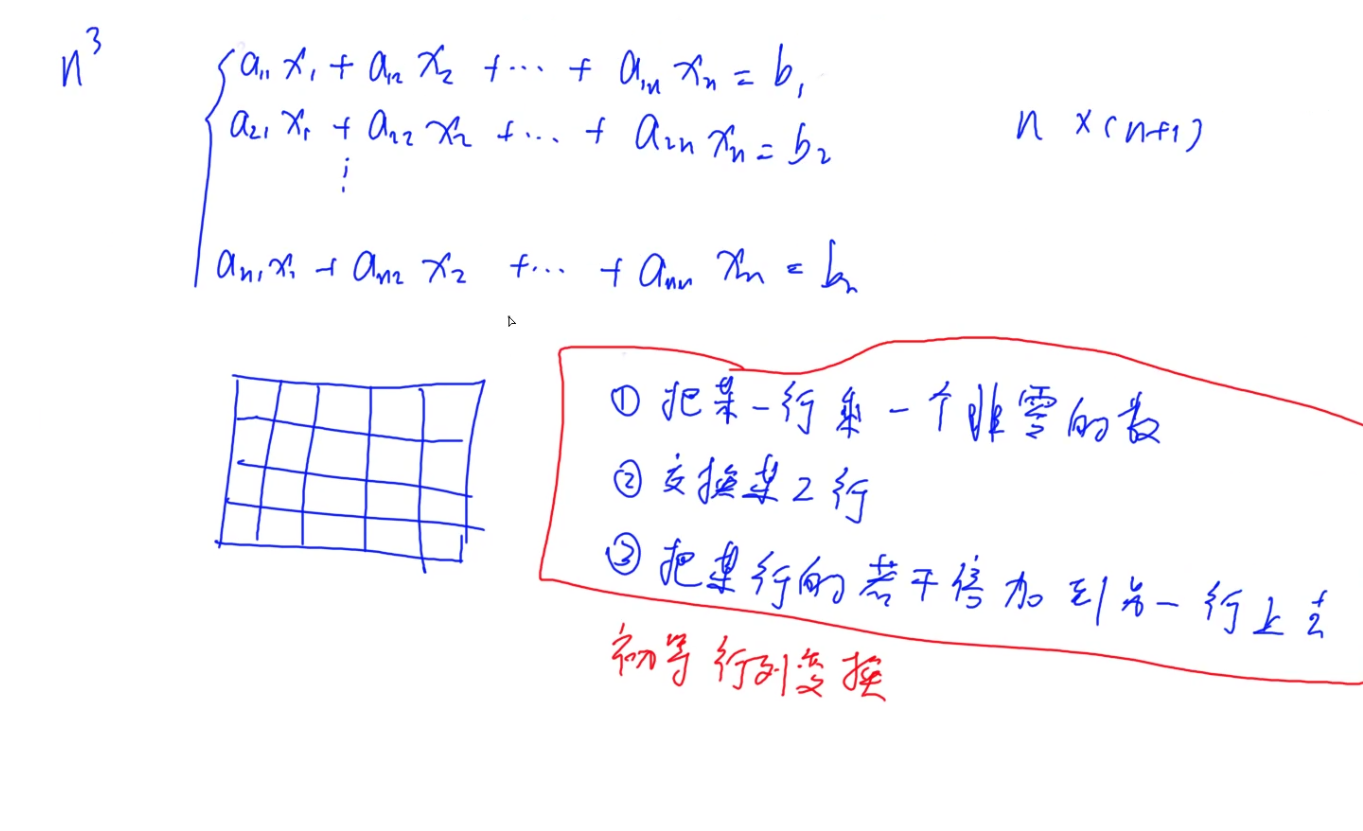 n³
a₁₁x₁ + a₁₂x₂ + ··· + a₁ₙxₙ = b₁
a₂₁x₁ + a₂₂x₂ + ··· + a₂ₙxₙ = b₂
⋮
aₙ₁x₁ + aₙ₂x₂ + ··· + aₙₙxₙ = bₙ
n×(n+1)
① 把某一行乘一个非零的数
② 交换某2行
③ 把某行的若干倍加到另一行上去
初等行列变换